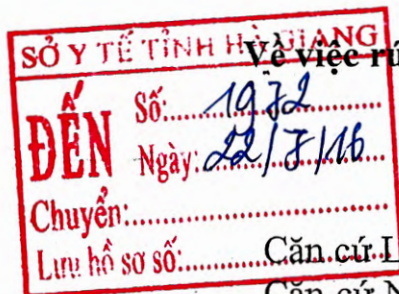 SỞ Y TẾ TỈNH HÀ GIANG
Về việc rú
ĐẾN
Số:.....1972.....
Ngày:22/7/16
Chuyển:.....
Lưu hồ sơ số:.....
Căn cứ L
Căn cứ N